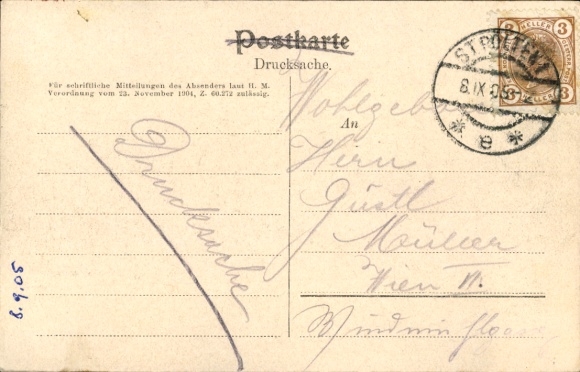 Postkarte
Drucksache.
Für schriftliche Mitteilungen des Absenders laut H. M.
Verordnung vom 23. November 1904, Z. 60.272 zulässig.
3 HELLER 3
3 3
ST. PÖLTEN 1
8.IX.05
* e *
An
Wohlgeb
Herrn
Gustl
Müller
Wien VI.
Windmühlgasse
Drucksache
8.9.05